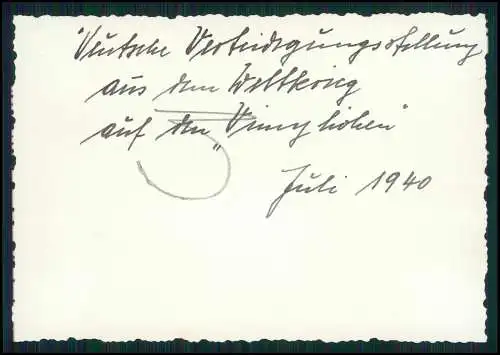 Deutsche Verteidigungsstellung
aus dem Weltkrieg
auf den „Vimyhöhen"
Juli 1940